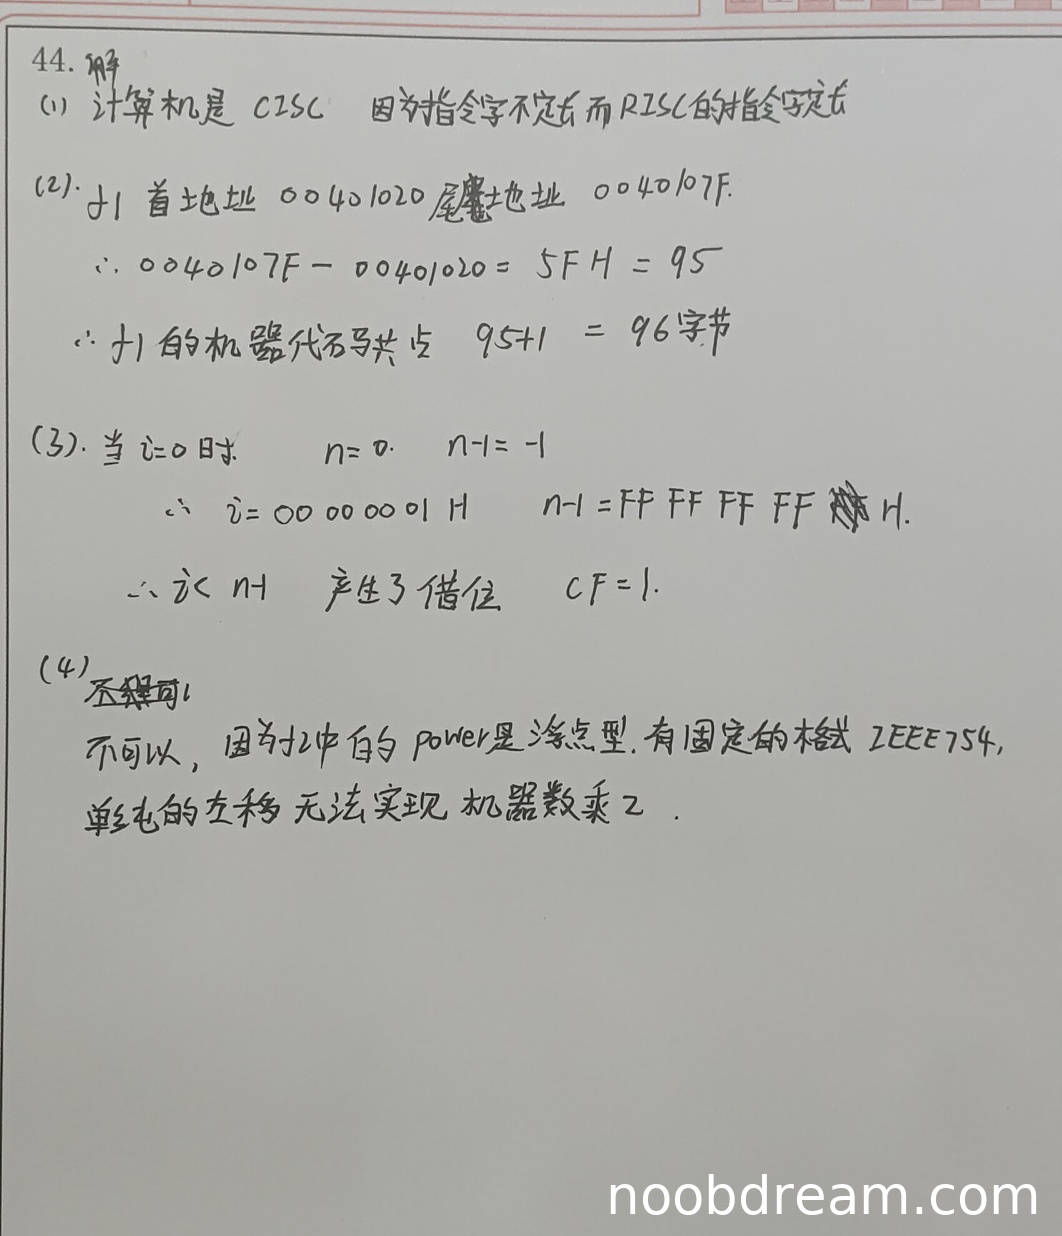 44. 解
(1) 计算机是 CISC 因为指令字不定长而RISC的指令字定长
(2). f1 首地址 00401020 尾地址 0040107F.
∴ 0040107F - 00401020 = 5FH = 95
∴ f1的机器代码共占 95+1 = 96字节
(3). 当 i=0时. n=0. n-1=-1
∴ i=00 00 00 01 H n-1=FF FF FF FF H.
∴ i< n-1 产生了借位 CF=1.
(4)
不可以, 因为f2中的power是浮点型.有固定的格式 IEEE754,
单纯的左移无法实现 机器数乘2.
noobdream.com